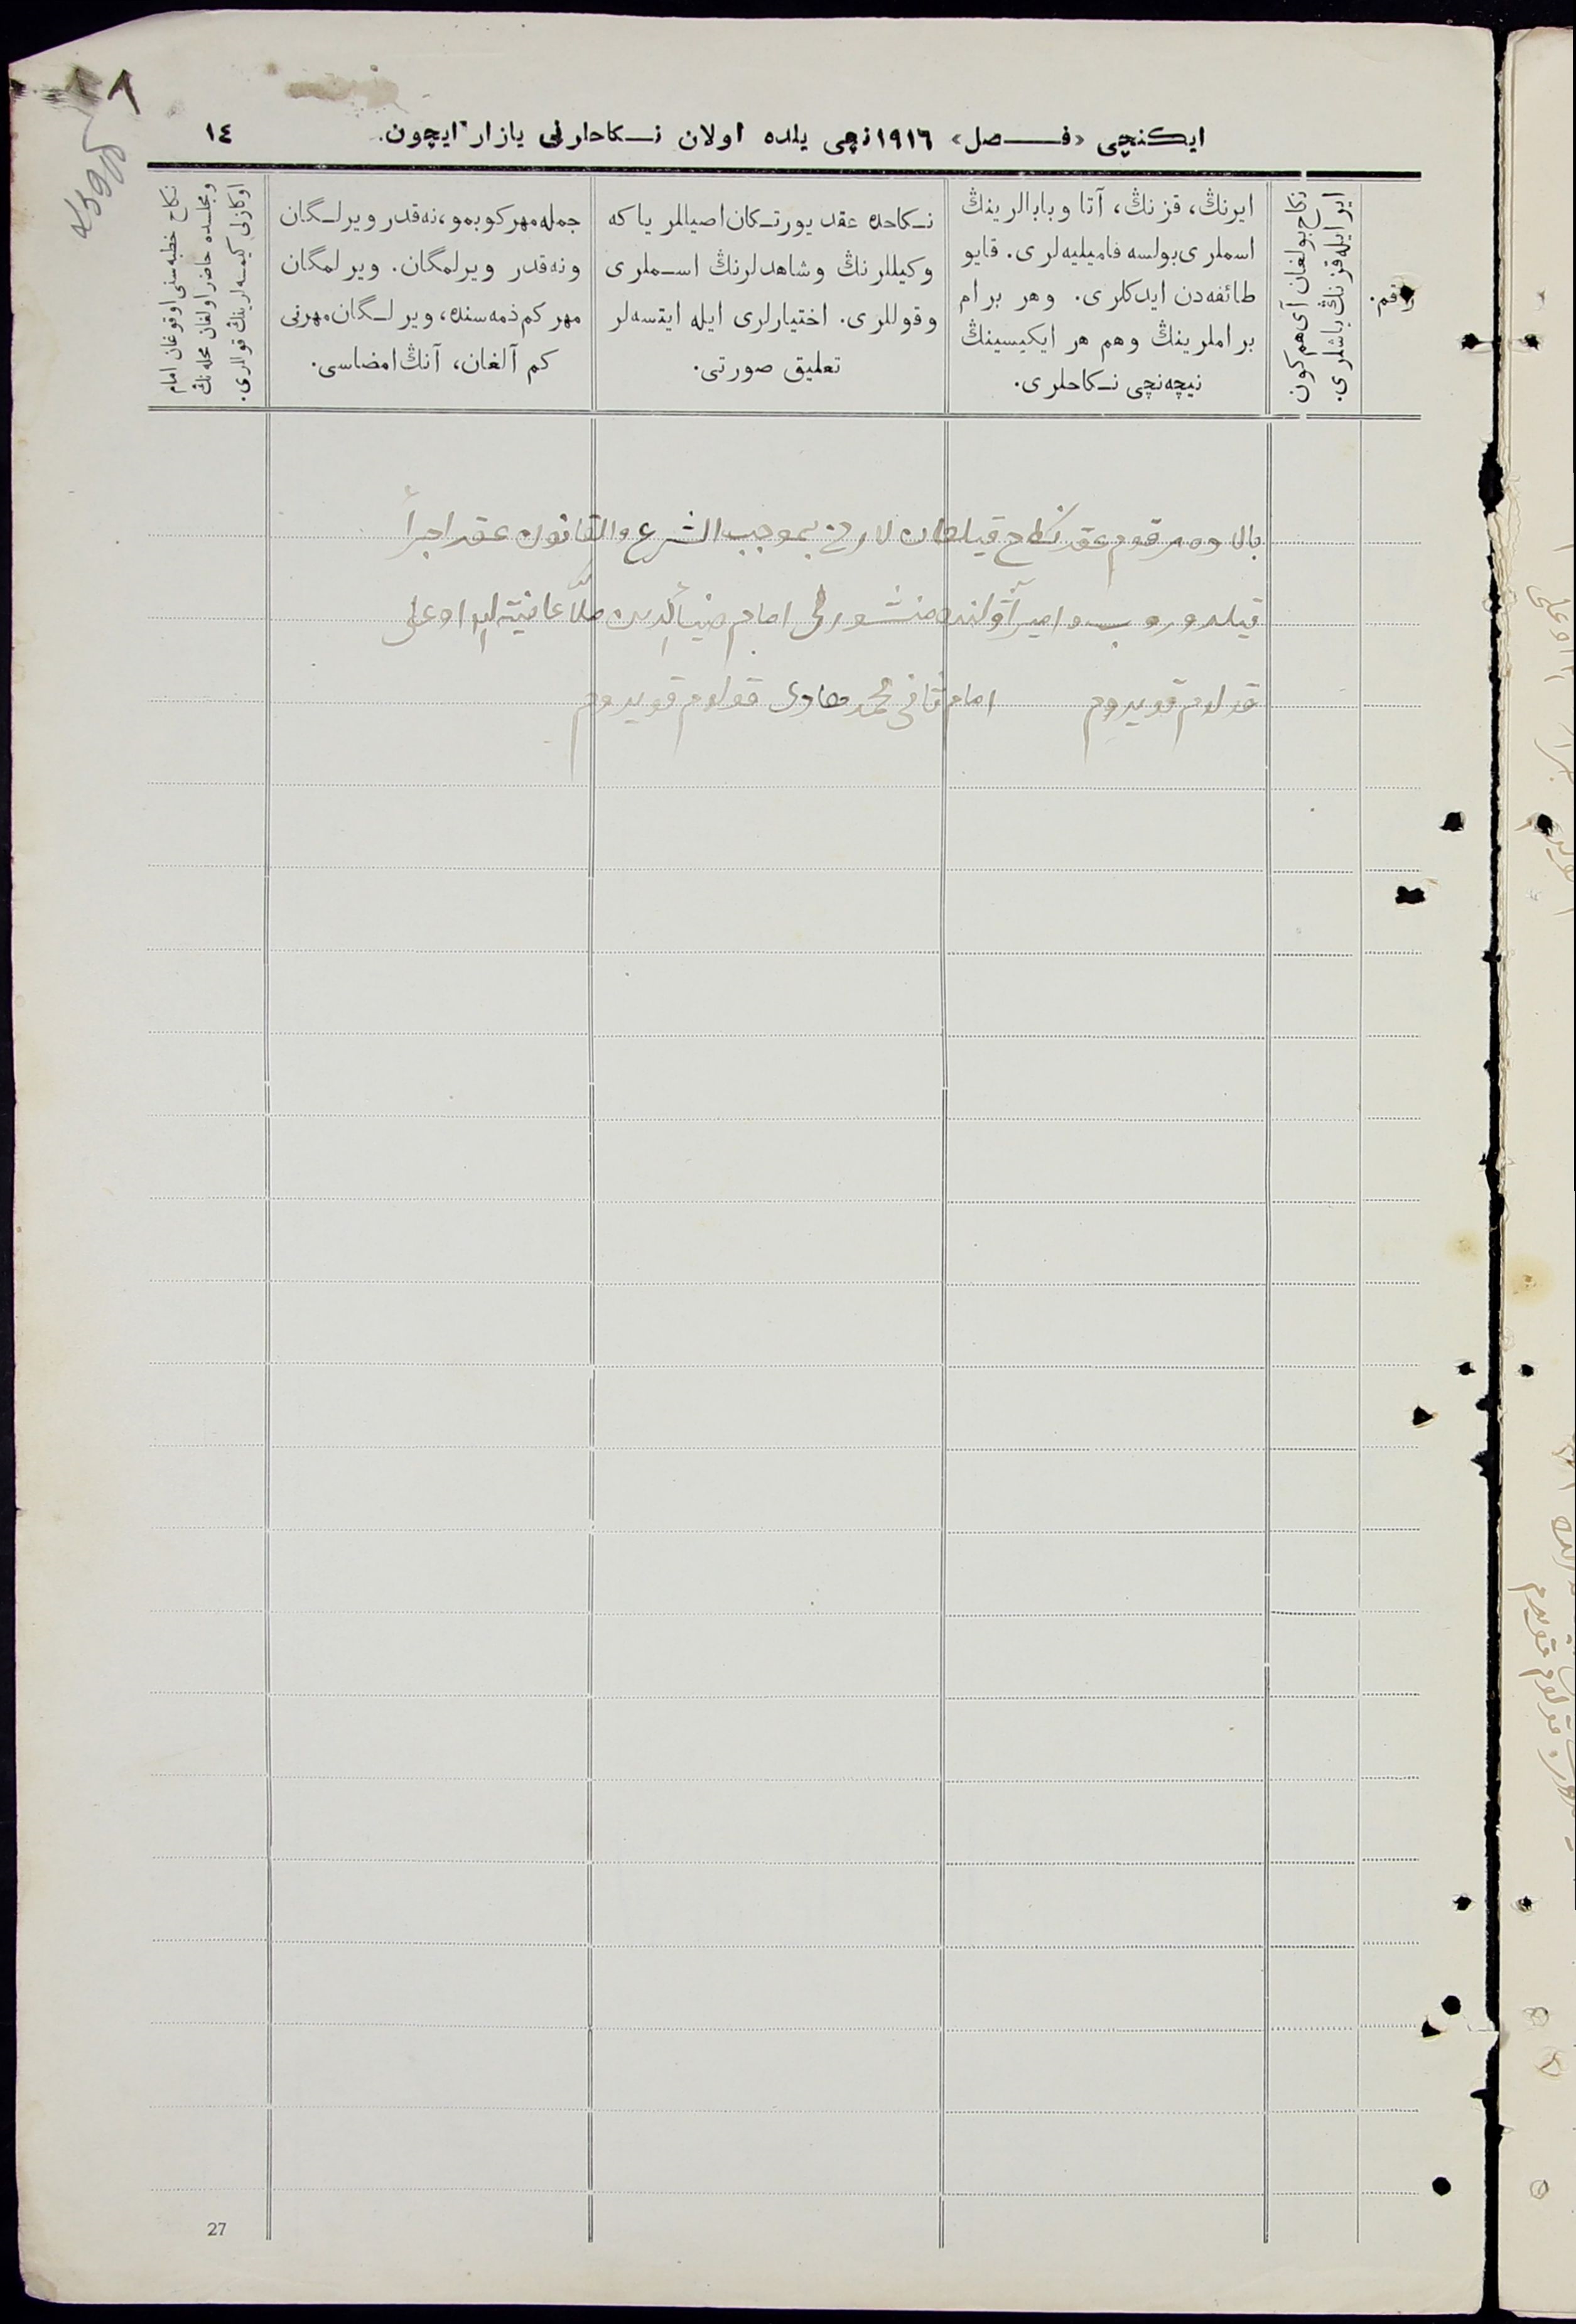 ایکنچی «فصل» ١٩١٦ نچی یلده اولان نکاحلرنی یازار ایچون.
١٤
رقم.
ایر ایله قزنڭ یاشلری.
نکاح بولغان آی هم کون
ایرنڭ، قزنڭ، آتا و بابالرینڭ
اسملری بولسه فامیلیه‌لری. قایو
طائفه‌دن ایدکلری. وهر برام
براملرینڭ وهم هر ایکیسینڭ
نیچه‌نچی نکاحلری.
نکاحده عقد یورتکان اصیللر یا که
وکیللرنڭ وشاهدلرنڭ اسملری
وقوللری. اختیارلری ایله ایتسه‌لر
تعلیق صورتی.
جمله مهر کوبمو، نه‌قدر ویرلگان
ونه‌قدر ویرلمگان. ویرلمگان
مهر کم ذمه‌سنده، ویرلگان مهرنی
کم آلغان، آنڭ امضاسی.
نکاح خطبه‌سنی اوقوغان امام
ومجلسده حاضر اولغان محله‌نڭ
اوکازلی کیمسه‌لرینڭ قوللری.
بالاده مرقوم عقد نکاح قیلغان لارنی بموجب الشرع والقانون عقد اجرأ
قیلدوروب امام ضیاءالدین ملا
قولوم قویدوم امام ثانی محمد هادی قولوم قویدوم
27